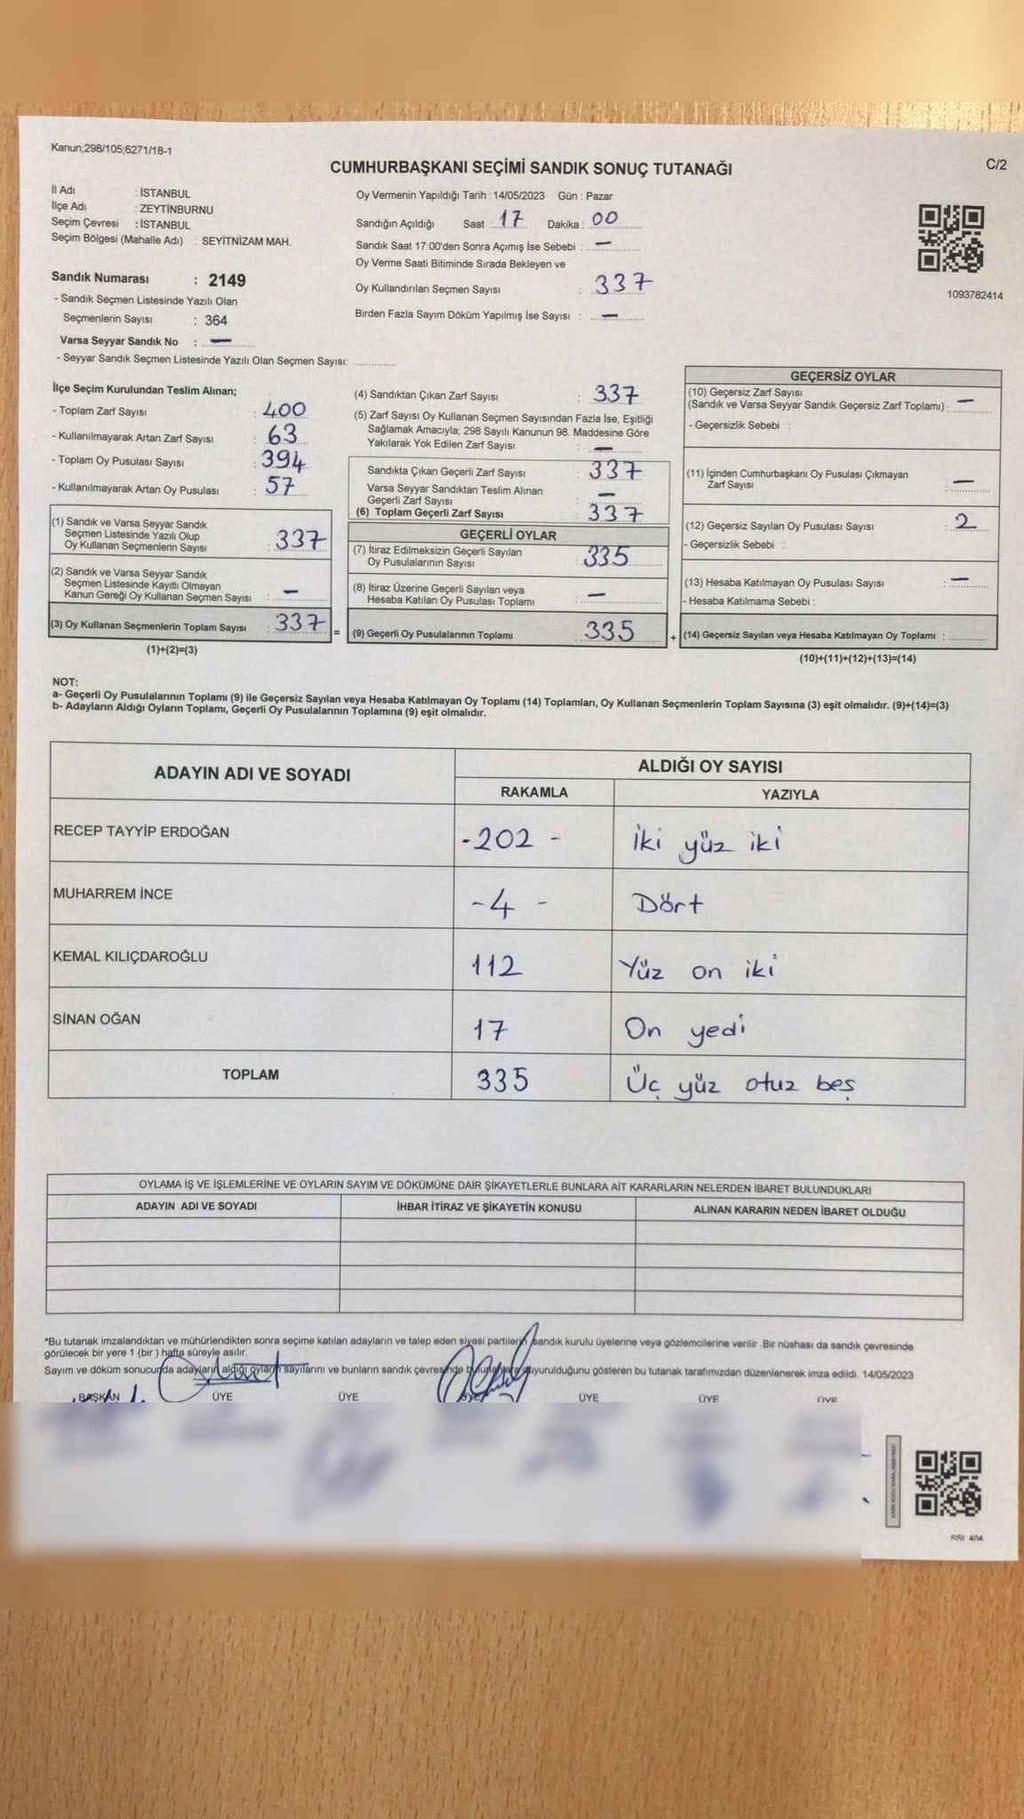 Kanun;298/105;6271/18-1
CUMHURBAŞKANI SEÇİMİ SANDIK SONUÇ TUTANAĞI
C/2
İl Adı : İSTANBUL
İlçe Adı : ZEYTİNBURNU
Seçim Çevresi : İSTANBUL
Seçim Bölgesi (Mahalle Adı) : SEYİTNİZAM MAH.
Oy Vermenin Yapıldığı Tarih : 14/05/2023 Gün : Pazar
Sandığın Açıldığı Saat : 17 Dakika : 00
Sandık Saat 17:00'den Sonra Açımış İse Sebebi : —
Oy Verme Saati Bitiminde Sırada Bekleyen ve
Oy Kullandırılan Seçmen Sayısı : 337
Birden Fazla Sayım Döküm Yapılmış İse Sayısı : —
1093782414
Sandık Numarası : 2149
- Sandık Seçmen Listesinde Yazılı Olan
Seçmenlerin Sayısı : 364
Varsa Seyyar Sandık No : —
- Seyyar Sandık Seçmen Listesinde Yazılı Olan Seçmen Sayısı:
İlçe Seçim Kurulundan Teslim Alınan;
- Toplam Zarf Sayısı : 400
- Kullanılmayarak Artan Zarf Sayısı : 63
- Toplam Oy Pusulası Sayısı : 394
- Kullanılmayarak Artan Oy Pusulası : 57
(1) Sandık ve Varsa Seyyar Sandık
Seçmen Listesinde Yazılı Olup
Oy Kullanan Seçmenlerin Sayısı : 337
(2) Sandık ve Varsa Seyyar Sandık
Seçmen Listesinde Kayıtlı Olmayan
Kanun Gereği Oy Kullanan Seçmen Sayısı : —
(3) Oy Kullanan Seçmenlerin Toplam Sayısı 337
(1)+(2)=(3)
(4) Sandıktan Çıkan Zarf Sayısı : 337
(5) Zarf Sayısı Oy Kullanan Seçmen Sayısından Fazla İse, Eşitliği
Sağlamak Amacıyla; 298 Sayılı Kanunun 98. Maddesine Göre
Yakılarak Yok Edilen Zarf Sayısı : —
Sandıkta Çıkan Geçerli Zarf Sayısı : 337
Varsa Seyyar Sandıktan Teslim Alınan
Geçerli Zarf Sayısı : —
(6) Toplam Geçerli Zarf Sayısı : 337
GEÇERLİ OYLAR
(7) İtiraz Edilmeksizin Geçerli Sayılan
Oy Pusulalarının Sayısı : 335
(8) İtiraz Üzerine Geçerli Sayılan veya
Hesaba Katılan Oy Pusulası Toplamı : —
= (9) Geçerli Oy Pusulalarının Toplamı 335
GEÇERSİZ OYLAR
(10) Geçersiz Zarf Sayısı
(Sandık ve Varsa Seyyar Sandık Geçersiz Zarf Toplamı) : —
- Geçersizlik Sebebi :
(11) İçinden Cumhurbaşkanı Oy Pusulası Çıkmayan
Zarf Sayısı : —
(12) Geçersiz Sayılan Oy Pusulası Sayısı : 2
- Geçersizlik Sebebi :
(13) Hesaba Katılmayan Oy Pusulası Sayısı : —
- Hesaba Katılmama Sebebi :
+ (14) Geçersiz Sayılan veya Hesaba Katılmayan Oy Toplamı :
(10)+(11)+(12)+(13)=(14)
NOT:
a- Geçerli Oy Pusulalarının Toplamı (9) ile Geçersiz Sayılan veya Hesaba Katılmayan Oy Toplamı (14) Toplamları, Oy Kullanan Seçmenlerin Toplam Sayısına (3) eşit olmalıdır. (9)+(14)=(3)
b- Adayların Aldığı Oyların Toplamı, Geçerli Oy Pusulalarının Toplamına (9) eşit olmalıdır.
ADAYIN ADI VE SOYADI
ALDIĞI OY SAYISI
RAKAMLA YAZIYLA
RECEP TAYYİP ERDOĞAN -202- İki yüz iki
MUHARREM İNCE -4- Dört
KEMAL KILIÇDAROĞLU 112 Yüz on iki
SİNAN OĞAN 17 On yedi
TOPLAM 335 Üç yüz otuz beş
OYLAMA İŞ VE İŞLEMLERİNE VE OYLARIN SAYIM VE DÖKÜMÜNE DAİR ŞİKAYETLERLE BUNLARA AİT KARARLARIN NELERDEN İBARET BULUNDUKLARI
ADAYIN ADI VE SOYADI İHBAR İTİRAZ VE ŞİKAYETİN KONUSU ALINAN KARARIN NEDEN İBARET OLDUĞU
*Bu tutanak imzalandıktan ve mühürlendikten sonra seçime katılan adayların ve talep eden siyasi partilerin sandık kurulu üyelerine veya gözlemcilerine verilir. Bir nüshası da sandık çevresinde
görülecek bir yere 1 (bir) hafta süreyle asılır.
Sayım ve döküm sonucunda adayların aldığı oyların sayılarını ve bunların sandık çevresinde duyurulduğunu gösteren bu tutanak tarafımızdan düzenlenerek imza edildi. 14/05/2023
BAŞKAN ÜYE ÜYE ÜYE ÜYE ÜYE